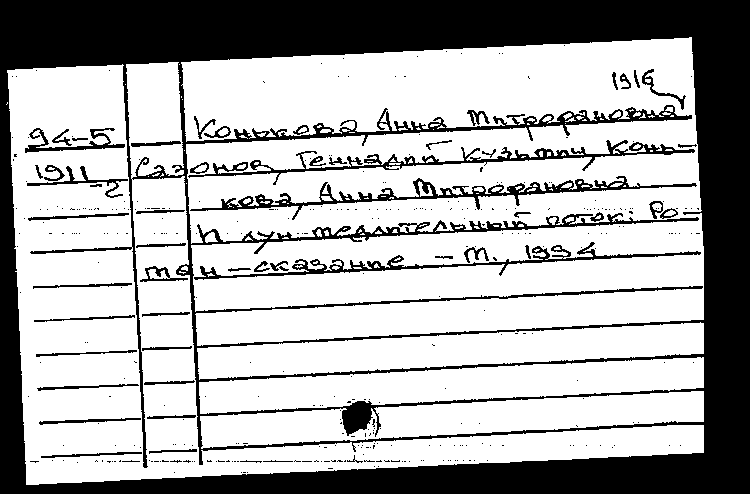 1916
94-5 Конькова, Анна Митрофановна
1911-2 Сазонов, Геннадий Кузьмич, Конь-
кова, Анна Митрофановна.
И лун медлительный поток: Ро-
ман-сказание. - М., 1994